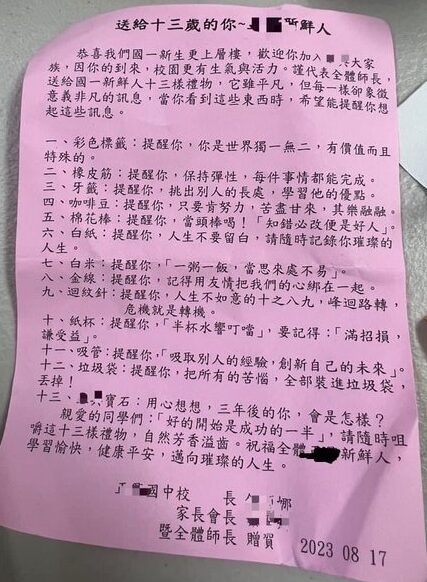 送給十三歲的你~ 新鮮人
恭喜我們國一新生更上層樓,歡迎你加入 大家
族,因你的到來,校園更有生氣與活力。謹代表全體師長,
送給國一新鮮人十三樣禮物,它雖平凡,但每一樣卻象徵
意義非凡的訊息,當你看到這些東西時,希望能提醒你想
起這些訊息。
一、彩色標籤:提醒你,你是世界獨一無二,有價值而且
特殊的。
二、橡皮筋:提醒你,保持彈性,每件事情都能完成。
三、牙籤:提醒你,挑出別人的長處,學習他的優點。
四、咖啡豆:提醒你,只要肯努力,苦盡甘來,其樂融融。
五、棉花棒:提醒你,當頭棒喝!「知錯必改便是好人」。
六、白紙:提醒你,人生不要留白,請隨時記錄你璀璨的
人生。
七、白米:提醒你,「一粥一飯,當思來處不易」。
八、金線:提醒你,記得用友情把我們的心綁在一起。
九、迴紋針:提醒你,人生不如意的十之八九,峰迴路轉,
危機就是轉機。
十、紙杯:提醒你,「半杯水響叮噹」,要記得:「滿招損,
謙受益」。
十一、吸管:提醒你,「吸取別人的經驗,創新自己的未來」。
十二、垃圾袋:提醒你,把所有的苦惱,全部裝進垃圾袋,
丟掉!
十三、 寶石:用心想想,三年後的你,會是怎樣?
親愛的同學們:「好的開始是成功的一半」,請隨時咀
嚼這十三樣禮物,自然芳香溢齒。祝福全體 新鮮人,
學習愉快,健康平安,邁向璀璨的人生。
國中校 長 娜
家長會長
暨全體師長 贈賀
2023 08 17